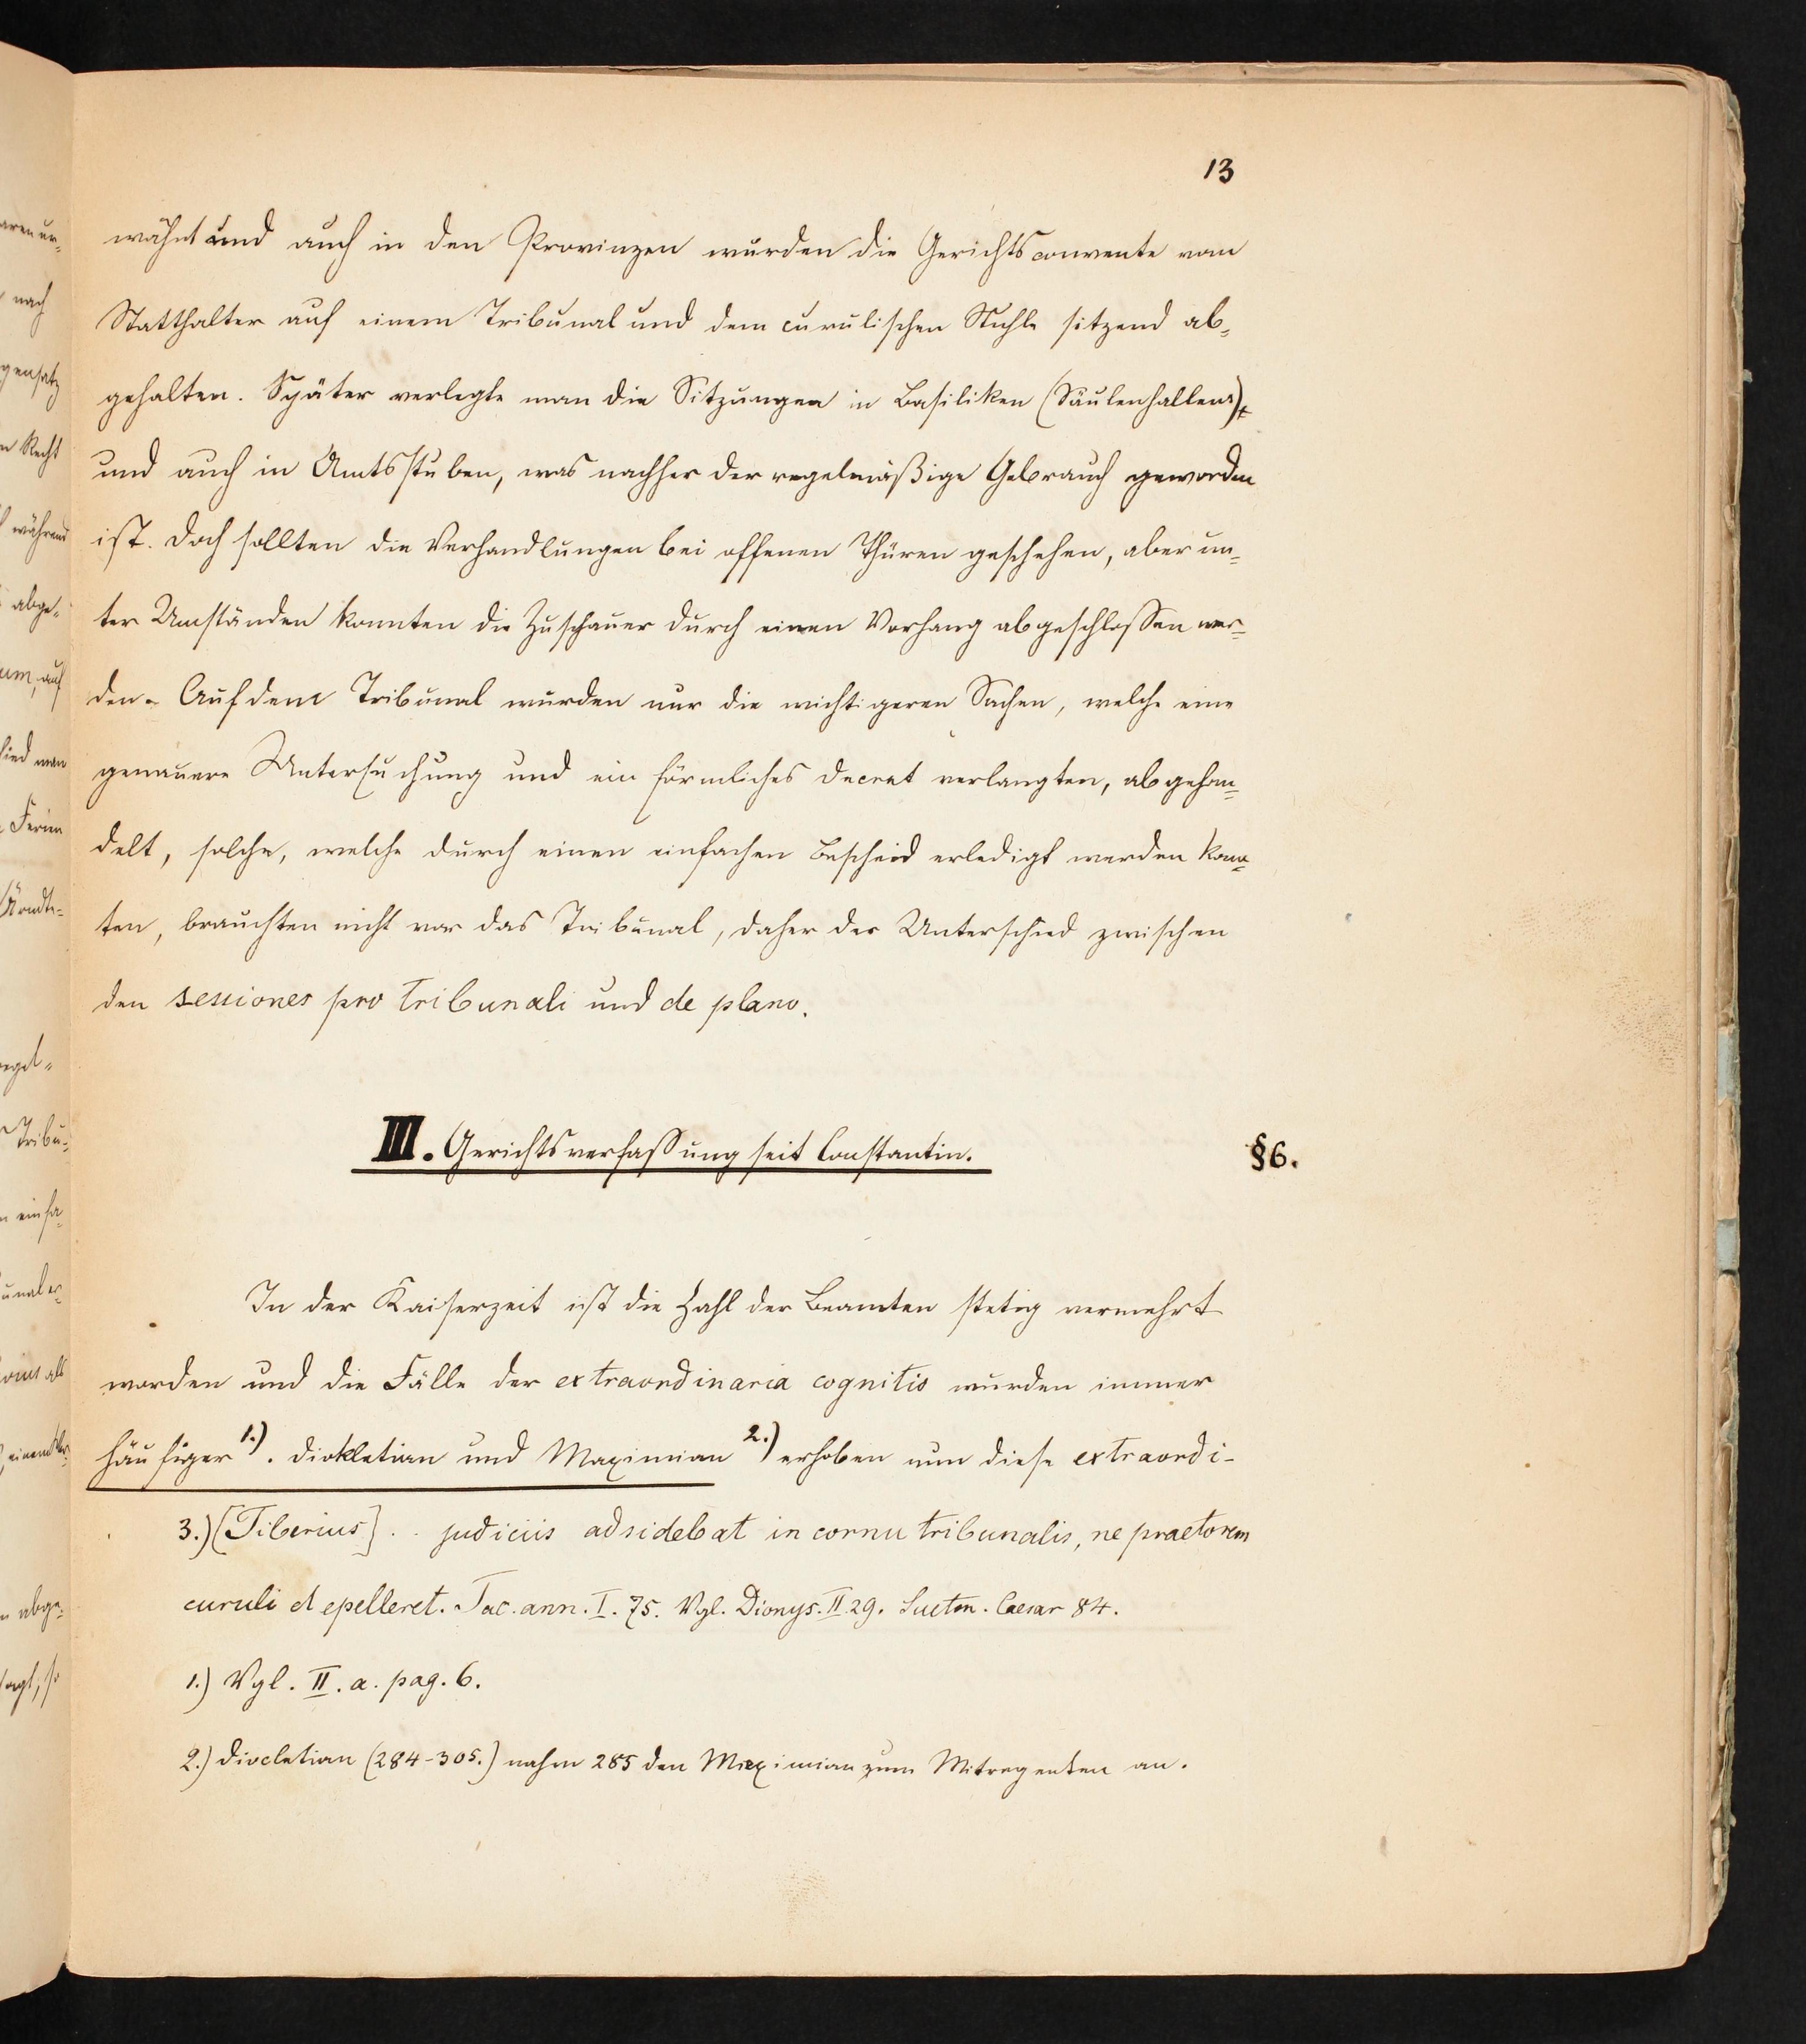 13
wähnt und auch in den Provinzen wurden die Gerichtsconvente vom
Statthalter auf einem Tribunal und dem curulischen Stuhle sitzend ab-
gehalten. Später verlegte man die Sitzungen in Basiliken (Säulenhallen)
und auch in Amtsstuben, was nachher der regelmäßige Gebrauch geworden
ist. Doch sollten die Verhandlungen bei offenen Thüren geschehen, aber un-
ter Umständen konnten die Zuschauer durch einen Vorhang abgeschlossen wer-
den. Auf dem Tribunal wurden nur die wichtigeren Sachen, welche eine
genauere Untersuchung und ein förmliches Decret verlangten, abgehan-
delt, solche, welche durch einen einfachen Bescheid erledigt werden konn-
ten, brauchten nicht vor das Tribunal, daher der Unterschied zwischen
den sessiones pro tribunali und de plano.
III. Gerichtsverfassung seit Constantin.
§6.
In der Kaiserzeit ist die Zahl der Beamten stetig vermehrt
worden und die Fälle der extraordinaria cognitio wurden immer
häufiger 1.). Diokletian und Maximian 2.) erhoben nun diese extraordi-
3.) [Tiberius] .. judiciis adsidebat in cornu tribunalis, ne praetorem
curuli depelleret. Tac. ann. I. 75. Vgl. Dionys. II 29. Sueton. Caesar 84.
1.) Vgl. II. a. pag. 6.
2.) Diocletian (284-305.) nahm 285 den Maximian zum Mitregenten an.